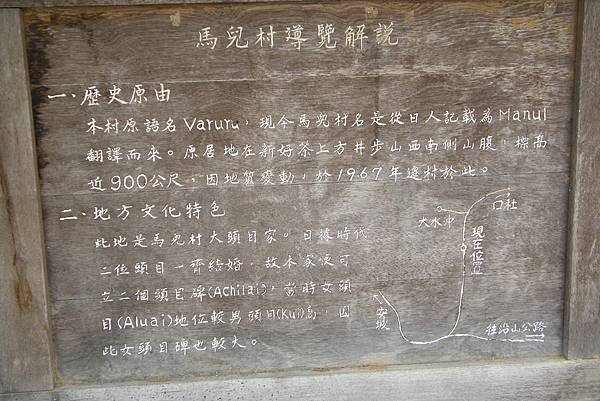 馬兒村導覽解說
一、歷史原由
本村原語名Varuru，現今馬兒村名是從日人記載為Manul
翻譯而來。原居地在新好茶上方井步山西南側山腹，標高
近900公尺，因地質變動，於1967年遷村於此。
二、地方文化特色
此地是馬兒村大頭目家。日據時代
二位頭目一齊結婚，故本家便可
立二個頭目碑(Achilai)，當時女頭
目(Aluai)地位較男頭目(Kui)高，因
此女頭目碑也較大。
口社
大水沖
現在位置
安坡
往沿山公路